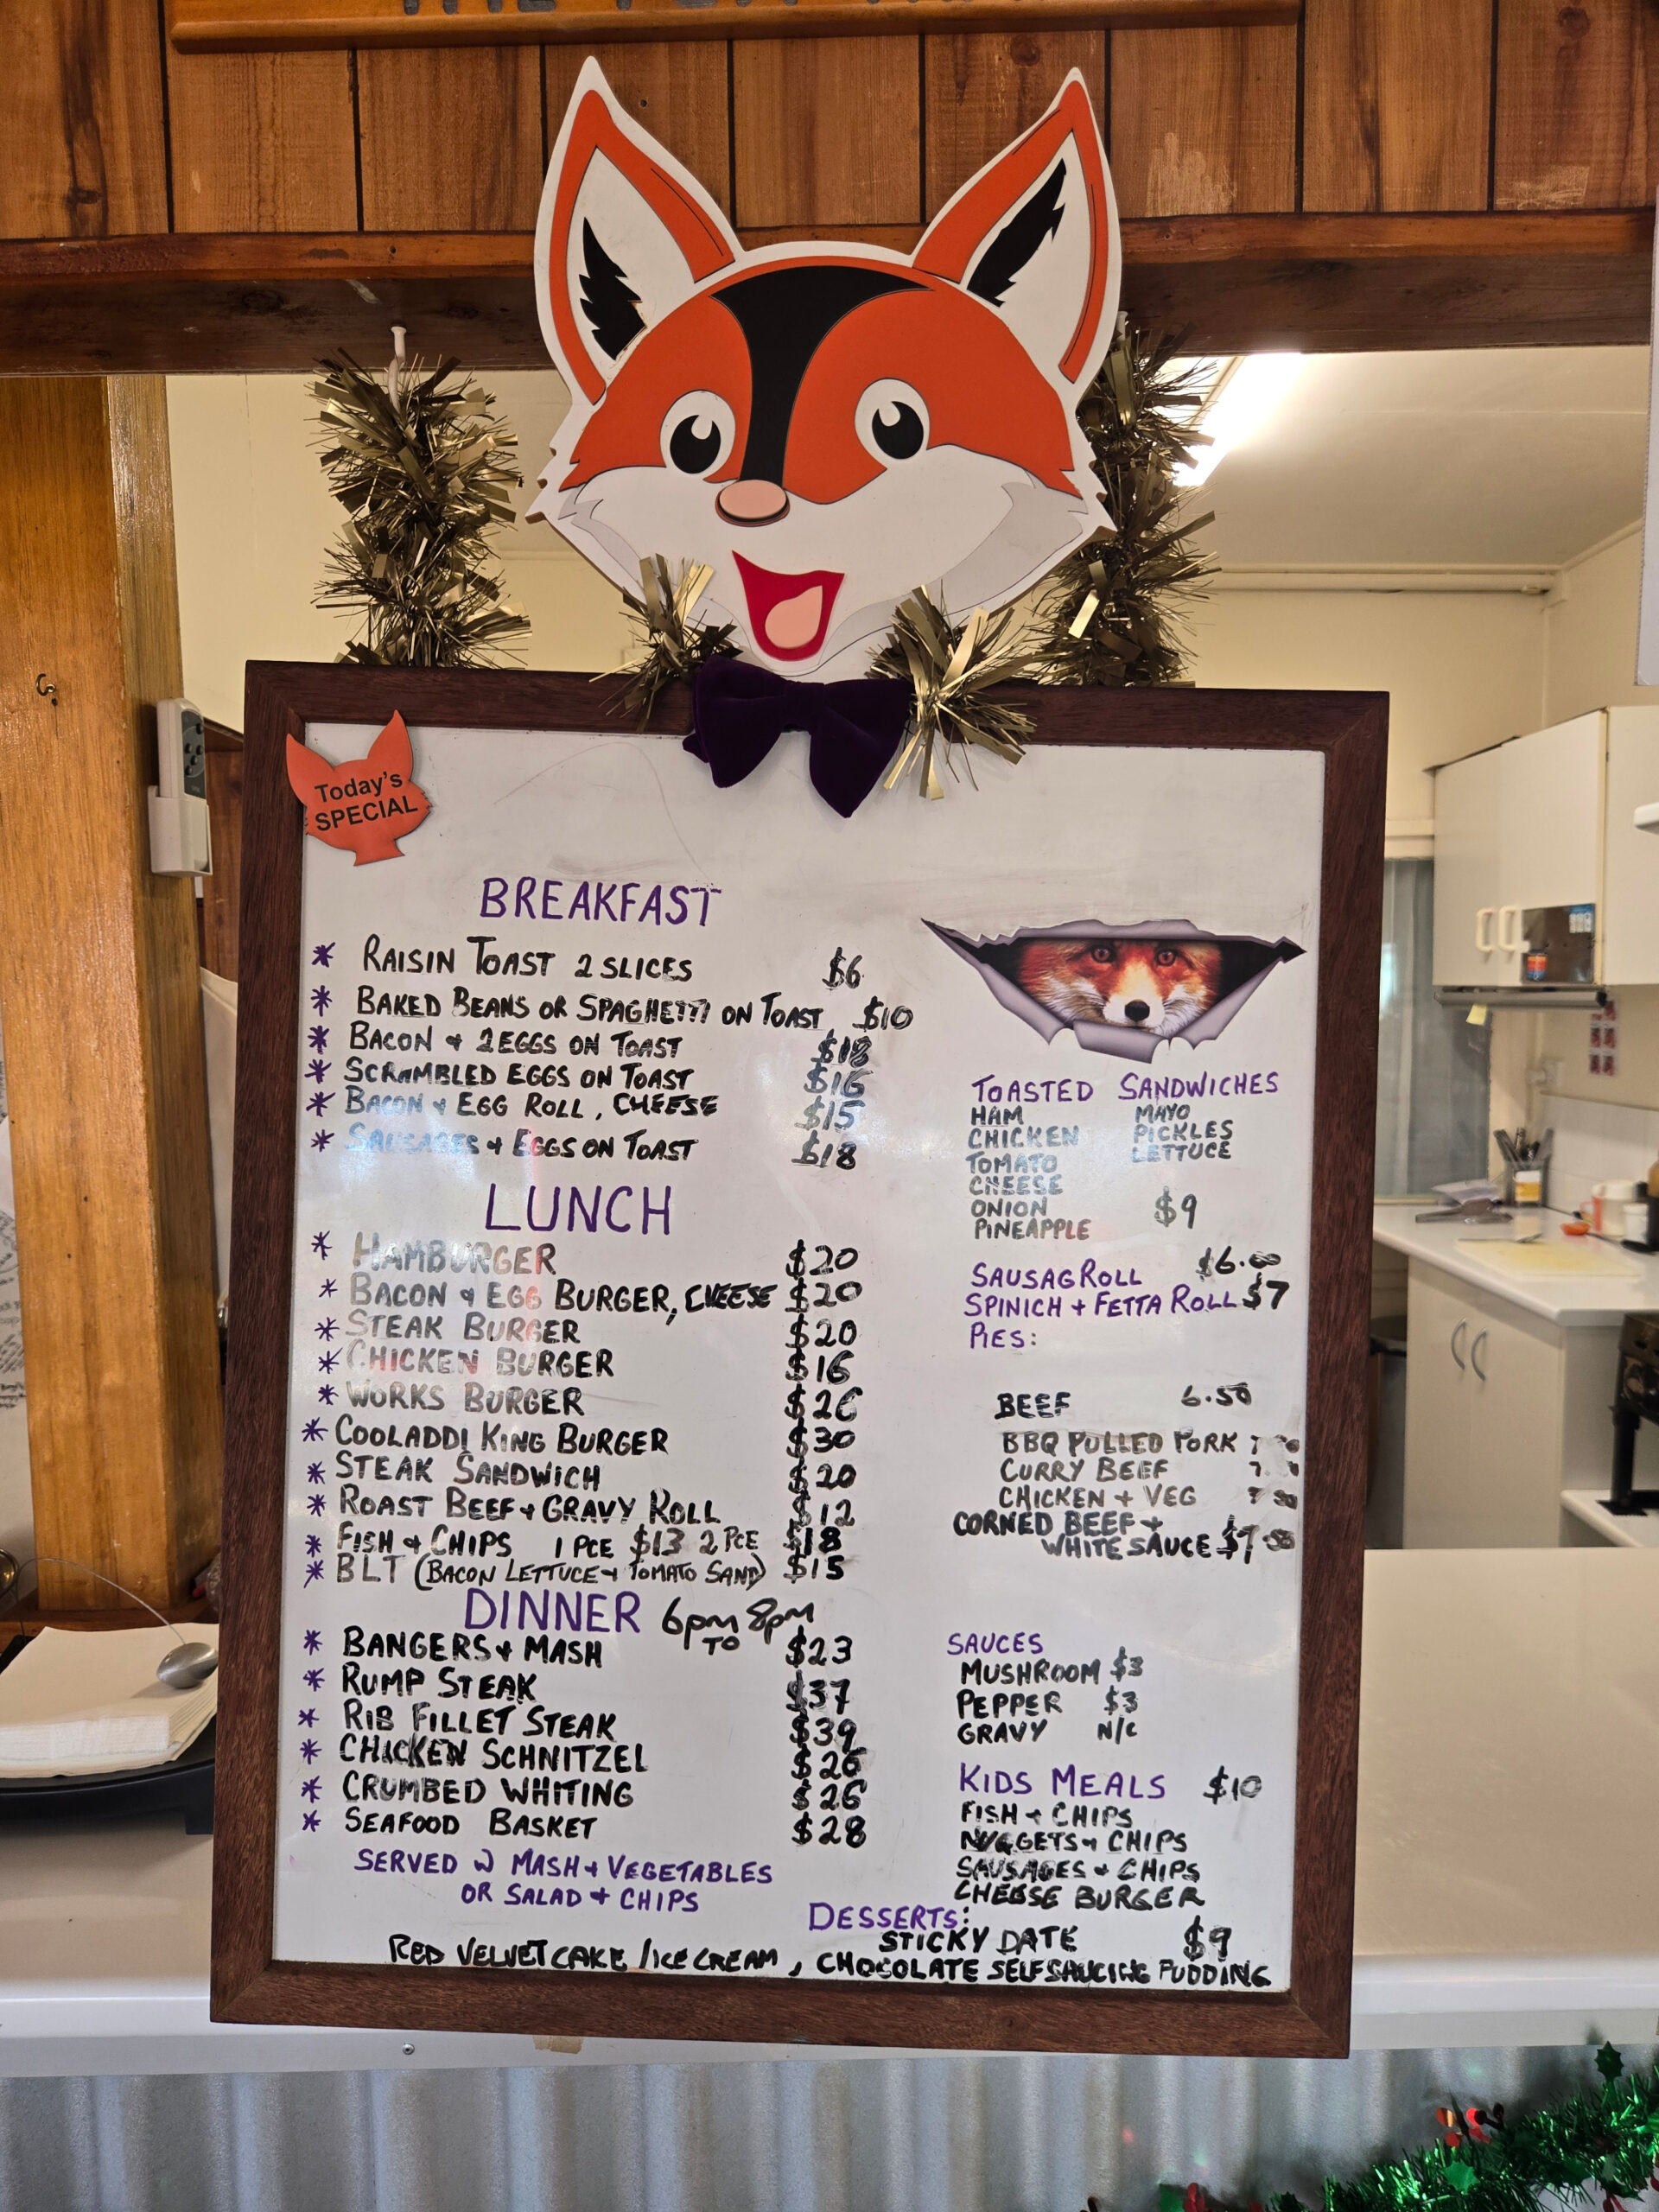 Today's
SPECIAL
BREAKFAST
* RAISIN TOAST 2 SLICES $6
* BAKED BEANS OR SPAGHETTI ON TOAST $10
* BACON + 2 EGGS ON TOAST $18
* SCRAMBLED EGGS ON TOAST $16
* BACON + EGG ROLL, CHEESE $15
* SAUSAGES + EGGS ON TOAST $18
LUNCH
* HAMBURGER $20
* BACON + EGG BURGER, CHEESE $20
* STEAK BURGER $20
* CHICKEN BURGER $16
* WORKS BURGER $26
* COOLADDI KING BURGER $30
* STEAK SANDWICH $20
* ROAST BEEF + GRAVY ROLL $12
* FISH + CHIPS 1 PCE $13 2 PCE $18
* BLT (BACON LETTUCE + TOMATO SAND) $15
DINNER 6pm TO 8pm
* BANGERS + MASH $23
* RUMP STEAK $37
* RIB FILLET STEAK $39
* CHICKEN SCHNITZEL $26
* CRUMBED WHITING $26
* SEAFOOD BASKET $28
SERVED W MASH + VEGETABLES
OR SALAD + CHIPS
TOASTED SANDWICHES
HAM MAYO
CHICKEN PICKLES
TOMATO LETTUCE
CHEESE
ONION $9
PINEAPPLE
SAUSAG ROLL $6.00
SPINICH + FETTA ROLL $7
PIES:
BEEF 6.50
BBQ PULLED PORK
CURRY BEEF
CHICKEN + VEG
CORNED BEEF +
WHITE SAUCE
SAUCES
MUSHROOM $3
PEPPER $3
GRAVY N/C
KIDS MEALS $10
FISH + CHIPS
NUGGETS + CHIPS
SAUSAGES + CHIPS
CHEESE BURGER
DESSERTS:
STICKY DATE $9
RED VELVET CAKE / ICE CREAM, CHOCOLATE SELFSAUCING PUDDING